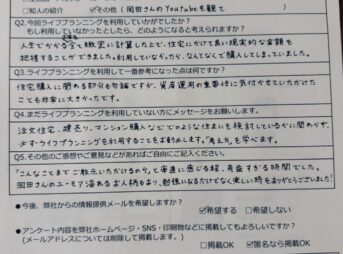 □知人の紹介 ☑その他（岡田さんのYoutubeを観て ）
Q2.今回ライフプランニングを利用していかがでしたか？
もし利用していなかったとしたら、どのようになると考えられますか？
人生でかかる金を緻密に計算した上で、住宅にかけて良い現実的な金額を
把握することができました。利用していなかったら、なんとなくで購入してしまっていました。
Q3.ライフプランニングを利用して一番参考になった点は何ですか？
住宅購入に関わる部分も勿論ですが、資産運用の重要性に気付かせていただけた
ことも非常に大きかったです。
Q4.まだライフプランニングを利用していない方にメッセージをお願いします。
注文住宅、建売り、マンション購入などどのような住まいを検討しているかに関わらず、
必ずライフプランニングを利用することをお勧めします。"考え方"も学べます。
Q5.その他のご感想やご意見などがあればご自由にご記入ください。
「こんなことまでご教示いただけるのか」と毎度に感じる程、有益すぎる時間でした。
岡田さんのユーモア溢れるお人柄もあり、勉強になるだけでなく楽しい時をありがとうございました!
●今後、弊社からの情報提供メールを希望しますか？ ☑希望する □希望しない
●アンケート内容を弊社ホームページ・SNS・印刷物などに掲載してもよろしいですか？
(メールアドレスについては削除して掲載します。) □掲載OK ☑匿名なら掲載OK